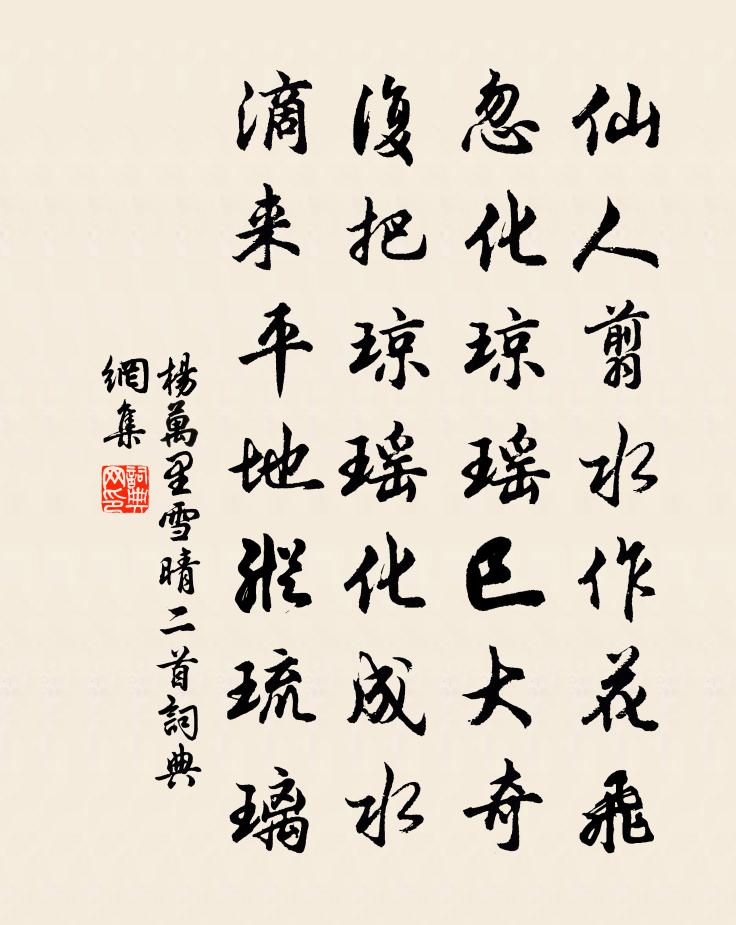 仙人翦水作花飛
忽化琼瑶已大奇
復把琼瑶化成水
滴来平地縱琉璃
楊萬里雪晴二首詞典
網集
詞典
网印